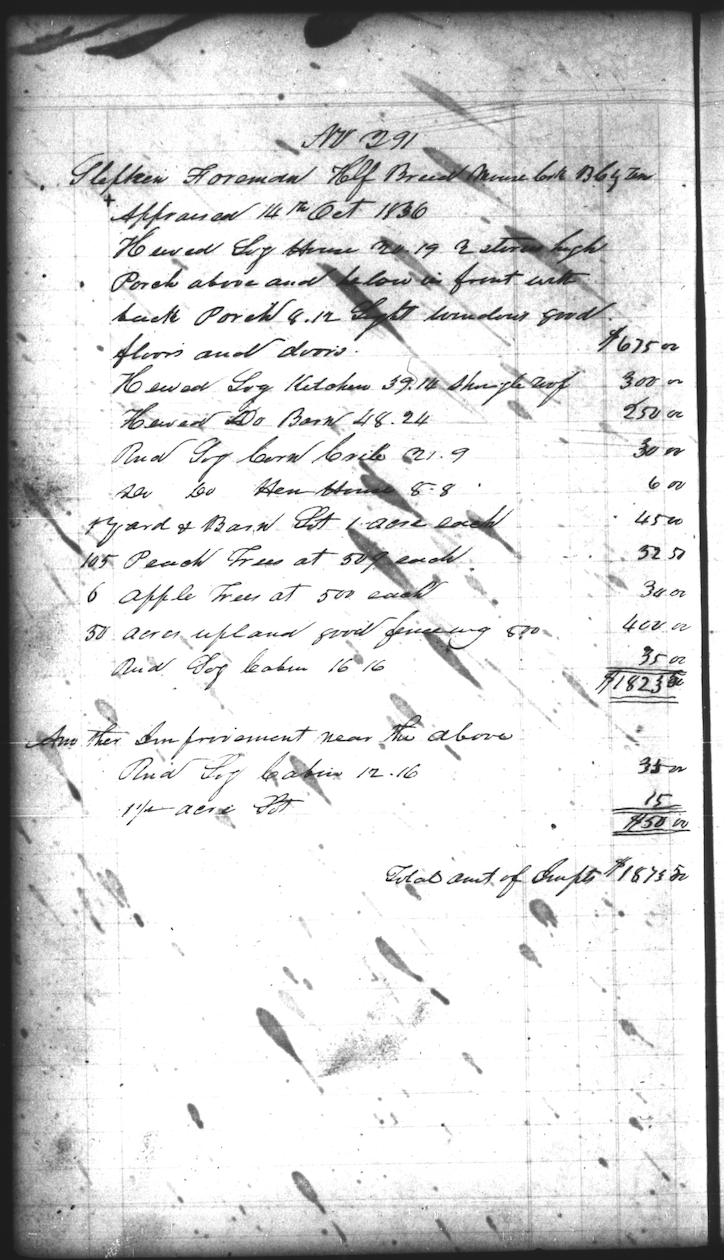 No 291
Stephen Foreman Hlf Breed Mouse Crk B Cy Ten
+ Appraised 14th Oct 1836
Hewed Log House 20.19 2 stories high
Porch above and below in front with
back Porch 8.12 Light windows good
floors and doors. $675 00
Hewed Log Kitchen 39.14 shingle roof 300 00
Hewed Do Barn 48.24 250 00
Rnd Log Corn Crib 21.9 30 00
Do Do Hen House 8-8 6 00
Yard & Barn Lot 1 acre each 45 00
105 Peach Trees at 50¢ each 52 50
6 Apple Trees at 500 each 30 00
50 acres upland good fencing 800 400 00
Rnd Log Cabin 16 16 35 00
$1823 50
Another Improvement near the above
Rnd Log Cabin 12.16 35 00
1½ acre Lot 15
$50 00
Total amt of Impts $1873 50